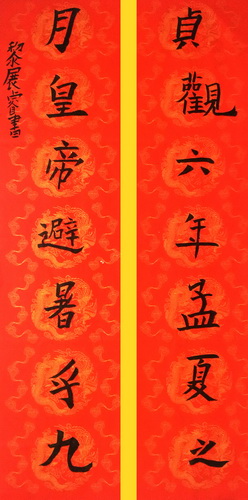 貞觀六年孟夏之
月皇帝避暑乎九